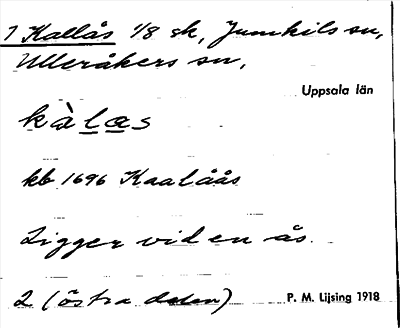 1 Kallås 1/8 sk, Jumkils sn,
Ulleråkers sn,
Uppsala län
kàlas
kb 1696 Kaalåås
Ligger vid en ås.
2 (östra delen)
P. M. Lijsing 1918